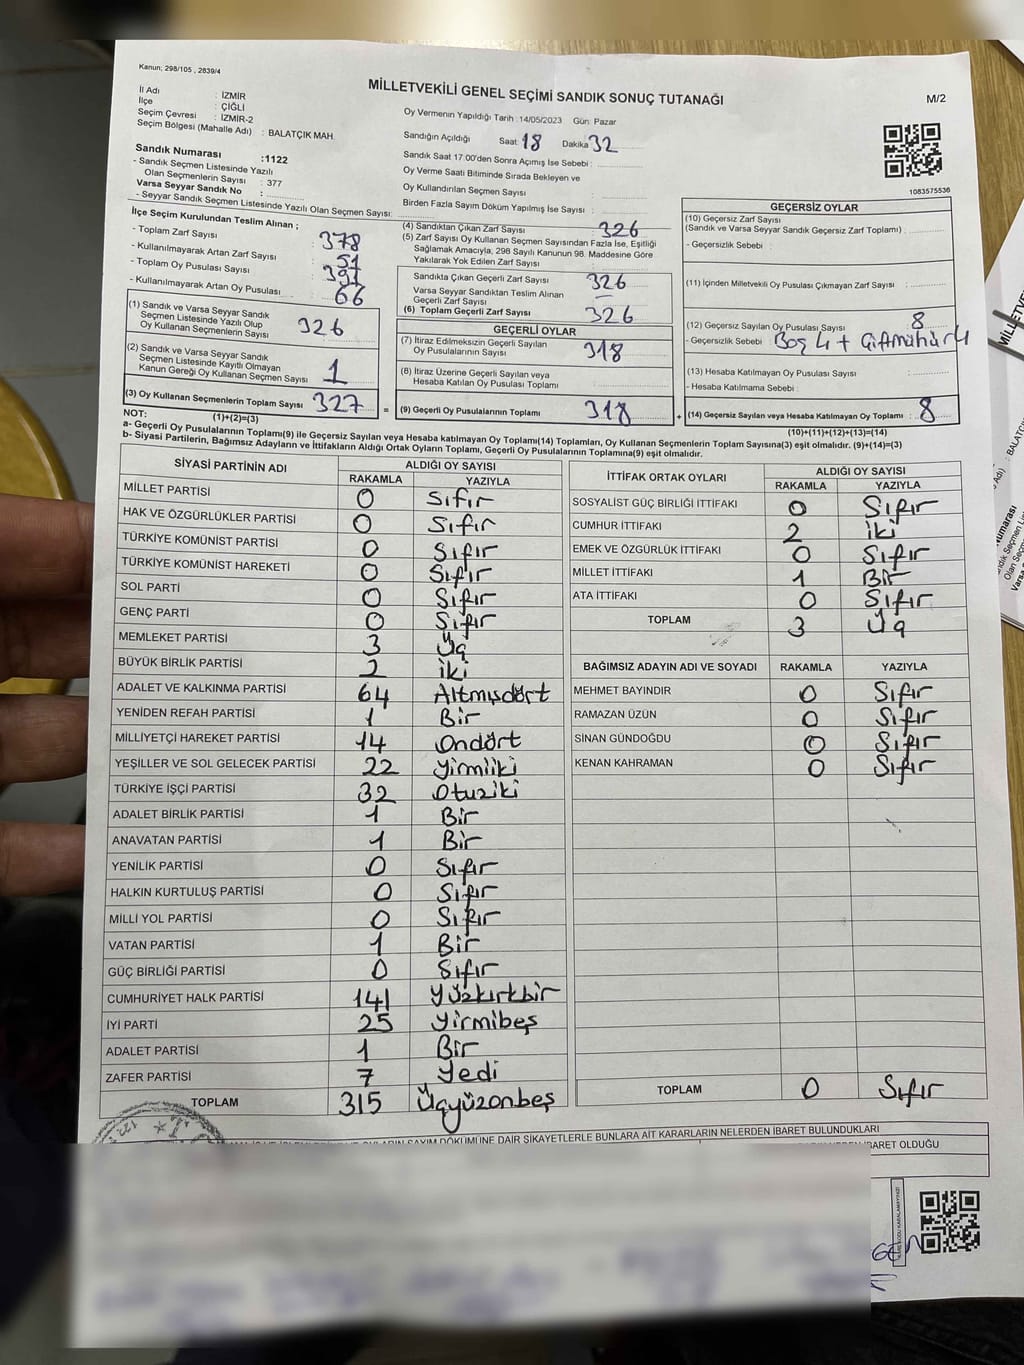 Kanun; 298/105 , 2839/4
MİLLETVEKİLİ GENEL SEÇİMİ SANDIK SONUÇ TUTANAĞI
M/2
İl Adı : İZMİR
İlçe : ÇİĞLİ
Seçim Çevresi : İZMİR-2
Seçim Bölgesi (Mahalle Adı) : BALATÇIK MAH.
Oy Vermenin Yapıldığı Tarih : 14/05/2023 Gün: Pazar
Sandığın Açıldığı Saat 18 Dakika 32
Sandık Saat 17.00'den Sonra Açımış İse Sebebi :
Oy Verme Saati Bitiminde Sırada Bekleyen ve
Oy Kullandırılan Seçmen Sayısı :
Birden Fazla Sayım Döküm Yapılmış İse Sayısı :
1083575536
Sandık Numarası :1122
- Sandık Seçmen Listesinde Yazılı
Olan Seçmenlerin Sayısı : 377
Varsa Seyyar Sandık No :
- Seyyar Sandık Seçmen Listesinde Yazılı Olan Seçmen Sayısı:
İlçe Seçim Kurulundan Teslim Alınan ;
- Toplam Zarf Sayısı : 378
- Kullanılmayarak Artan Zarf Sayısı : 51
- Toplam Oy Pusulası Sayısı : 391
- Kullanılmayarak Artan Oy Pusulası : 66
(1) Sandık ve Varsa Seyyar Sandık
Seçmen Listesinde Yazılı Olup
Oy Kullanan Seçmenlerin Sayısı 326
(2) Sandık ve Varsa Seyyar Sandık
Seçmen Listesinde Kayıtlı Olmayan
Kanun Gereği Oy Kullanan Seçmen Sayısı 1
(3) Oy Kullanan Seçmenlerin Toplam Sayısı 327
(1)+(2)=(3)
(4) Sandıktan Çıkan Zarf Sayısı 326
(5) Zarf Sayısı Oy Kullanan Seçmen Sayısından Fazla İse, Eşitliği
Sağlamak Amacıyla, 298 Sayılı Kanunun 98. Maddesine Göre
Yakılarak Yok Edilen Zarf Sayısı :
Sandıkta Çıkan Geçerli Zarf Sayısı 326
Varsa Seyyar Sandıktan Teslim Alınan
Geçerli Zarf Sayısı —
(6) Toplam Geçerli Zarf Sayısı 326
GEÇERLİ OYLAR
(7) İtiraz Edilmeksizin Geçerli Sayılan
Oy Pusulalarının Sayısı 318
(8) İtiraz Üzerine Geçerli Sayılan veya
Hesaba Katılan Oy Pusulası Toplamı
= (9) Geçerli Oy Pusulalarının Toplamı 318
GEÇERSİZ OYLAR
(10) Geçersiz Zarf Sayısı
(Sandık ve Varsa Seyyar Sandık Geçersiz Zarf Toplamı) :
- Geçersizlik Sebebi :
(11) İçinden Milletvekili Oy Pusulası Çıkmayan Zarf Sayısı :
(12) Geçersiz Sayılan Oy Pusulası Sayısı : 8
- Geçersizlik Sebebi Boş 4 + Çiftmühür 4
(13) Hesaba Katılmayan Oy Pusulası Sayısı :
- Hesaba Katılmama Sebebi :
+ (14) Geçersiz Sayılan veya Hesaba Katılmayan Oy Toplamı : 8
(10)+(11)+(12)+(13)=(14)
NOT:
a- Geçerli Oy Pusulalarının Toplamı(9) ile Geçersiz Sayılan veya Hesaba katılmayan Oy Toplamı(14) Toplamları, Oy Kullanan Seçmenlerin Toplam Sayısına(3) eşit olmalıdır. (9)+(14)=(3)
b- Siyasi Partilerin, Bağımsız Adayların ve İttifakların Aldığı Ortak Oyların Toplamı, Geçerli Oy Pusulalarının Toplamına(9) eşit olmalıdır.
SİYASİ PARTİNİN ADI ALDIĞI OY SAYISI
RAKAMLA YAZIYLA
MİLLET PARTİSİ 0 Sıfır
HAK VE ÖZGÜRLÜKLER PARTİSİ 0 Sıfır
TÜRKİYE KOMÜNİST PARTİSİ 0 Sıfır
TÜRKİYE KOMÜNİST HAREKETİ 0 Sıfır
SOL PARTİ 0 Sıfır
GENÇ PARTİ 0 Sıfır
MEMLEKET PARTİSİ 3 Üç
BÜYÜK BİRLİK PARTİSİ 2 iki
ADALET VE KALKINMA PARTİSİ 64 Altmışdört
YENİDEN REFAH PARTİSİ 1 Bir
MİLLİYETÇİ HAREKET PARTİSİ 14 Ondört
YEŞİLLER VE SOL GELECEK PARTİSİ 22 Yirmiiki
TÜRKİYE İŞÇİ PARTİSİ 32 Otuziki
ADALET BİRLİK PARTİSİ 1 Bir
ANAVATAN PARTİSİ 1 Bir
YENİLİK PARTİSİ 0 Sıfır
HALKIN KURTULUŞ PARTİSİ 0 Sıfır
MİLLİ YOL PARTİSİ 0 Sıfır
VATAN PARTİSİ 1 Bir
GÜÇ BİRLİĞİ PARTİSİ 0 Sıfır
CUMHURİYET HALK PARTİSİ 141 Yüzkırkbir
İYİ PARTİ 25 Yirmibeş
ADALET PARTİSİ 1 Bir
ZAFER PARTİSİ 7 Yedi
TOPLAM 315 Üçyüzonbeş
İTTİFAK ORTAK OYLARI ALDIĞI OY SAYISI
RAKAMLA YAZIYLA
SOSYALİST GÜÇ BİRLİĞİ İTTİFAKI 0 Sıfır
CUMHUR İTTİFAKI 2 iki
EMEK VE ÖZGÜRLÜK İTTİFAKI 0 Sıfır
MİLLET İTTİFAKI 1 Bir
ATA İTTİFAKI 0 Sıfır
TOPLAM 3 Üç
BAĞIMSIZ ADAYIN ADI VE SOYADI RAKAMLA YAZIYLA
MEHMET BAYINDIR 0 Sıfır
RAMAZAN ÜZÜN 0 Sıfır
SİNAN GÜNDOĞDU 0 Sıfır
KENAN KAHRAMAN 0 Sıfır
TOPLAM 0 Sıfır
OYLARIN SAYIM DÖKÜMÜNE DAİR ŞİKAYETLERLE BUNLARA AİT KARARLARIN NELERDEN İBARET BULUNDUKLARI
İBARET OLDUĞU